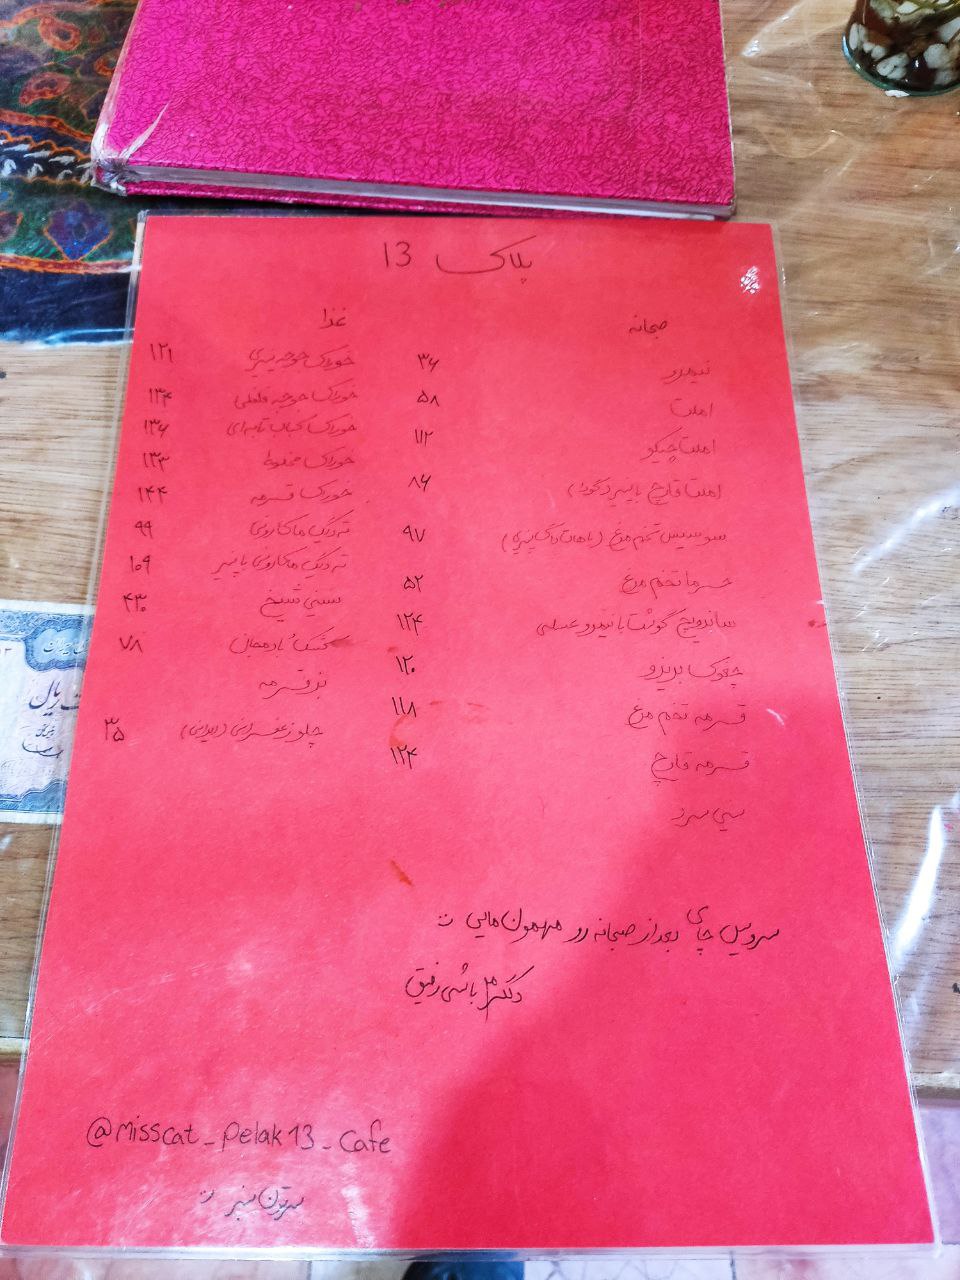 پلاک 13
صبحانه
نیمرو ۳۶
املت ۵۸
املت چیکو ۱۱۲
املت قارچ با پنیر گودا ۸۶
سوسیس تخم مرغ (هات داگ پنیری) ۹۷
خرما تخم مرغ ۵۲
ساندویچ گوشت با نیمرو عسلی ۱۲۴
چغوک بریزو ۱۲۰
قرمه تخم مرغ ۱۱۸
قرمه قارچ ۱۲۴
سینی سرد
غذا
خوراک جوجه پنیری ۱۲۱
خوراک جوجه فلفلی ۱۳۴
خوراک کباب تابه‌ای ۱۳۶
خوراک مخلوط ۱۳۳
خوراک قرمه ۱۴۴
ته دیگ ماکارونی ۹۹
ته دیگ ماکارونی با پنیر ۱۰۹
سینی شیخ ۴۳۰
کشک بادمجان ۷۸
بز قرمه
چلو زعفرانی (ایرانی) ۳۵
سرویس چای بعد از صبحانه رو مهمون مایی
دلگرم باشی رفیق
@misscat_pelak13_cafe
سرتون سبز